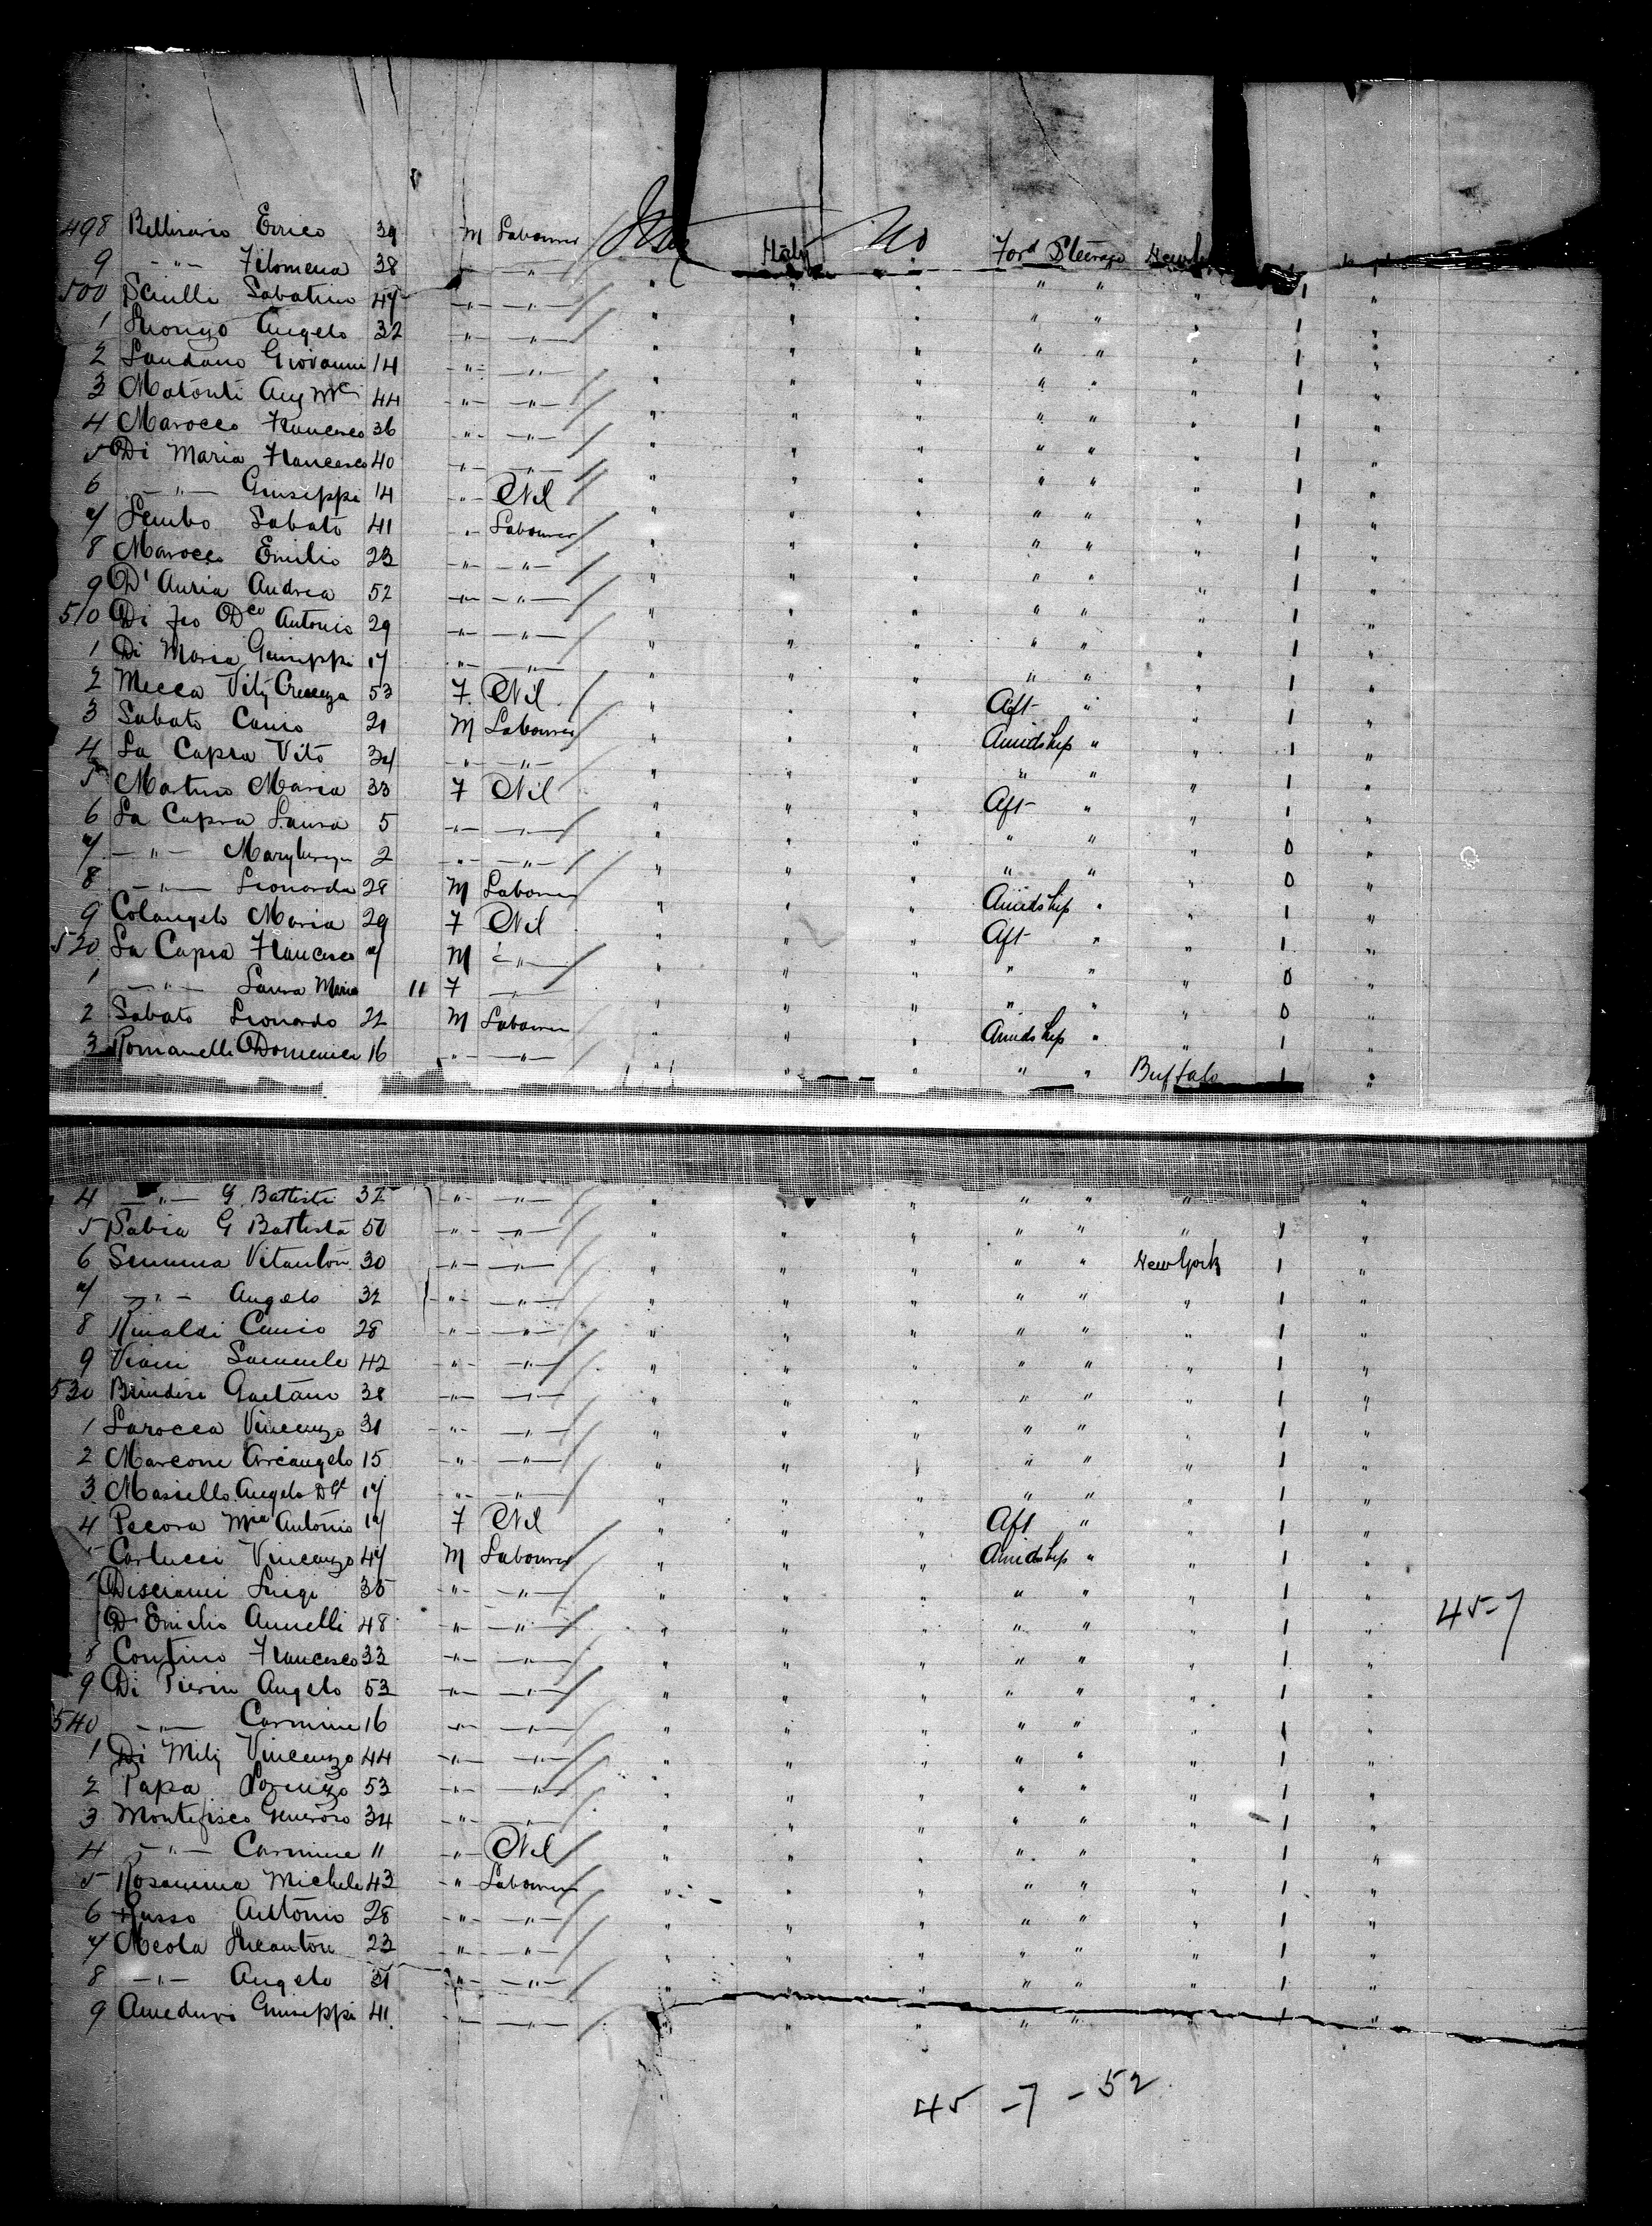 498 Bellisario Errico 39 M Labourer Italy Italy No Ford Steerage New
9 -"- Filomena 38 -"-
500 Sciulli Sabatino 47 -"- -"- " " " " " " 1 "
1 Angelo 32 -"- -"- " " " " " " 1 "
2 Landano Giovanni 14 -"- -"- " " " " " " 1 "
3 Matonti Ang Mᵉ 44 -"- -"- " " " " " " 1 "
4 Marocco Francesco 36 -"- -"- " " " " " " 1 "
5 Di Maria Francesco 40 -"- -"- " " " " " " 1 "
6 -"- Giuseppi 14 -"- Nil " " " " " " 1 "
7 Lembo Sabato 41 " Labourer " " " " " " 1 "
8 Marocco Emilio 23 -"- -"- " " " " " " 1 "
9 D'Auria Andrea 52 -"- -"- " " " " " " 1 "
510 Di Dco Antonio 29 -"- -"- " " " " " " 1 "
1 Di Maria Giuseppi 17 -"- -"- " " " " " " 1 "
2 Mecca Vita Crescenza 53 F Nil " " " Aft " " 1 "
3 Sabato Canio 21 M Labourer " " " Amidship " " 1 "
4 La Capra Vito 34 -"- -"- " " " " " " 1 "
5 Martino Maria 33 F Nil " " " Aft " " 1 "
6 La Capra Laura 5 -"- -"- " " " " " " 0 "
7 -"- 2 -"- -"- " " " " " " 0 "
8 -"- Leonarda 28 M Labourer " " " Amidship " " 1 "
9 Colangelo Maria 29 F Nil " " " Aft " " 1 "
520 La Capra Francesco 7 M -"- " " " " " " 0 "
1 -"- Laura Maria 11 F -"- " " " " " " 0 "
2 Sabato Leonardo 22 M Labourer " " " Amidship " " 1 "
3 Romanelli Domenico 16 -"- -"- " " " " " Buffalo 1 "
4 -"- G. Battista 32 -"- -"- " " " " " " "
5 Sabia G Battista 50 -"- -"- " " " " " " 1 "
6 Summa Vitanton 30 -"- -"- " " " " " New York 1 "
7 -"- Angelo 32 -"- -"- " " " " " " 1 "
8 Rinaldi Canio 28 -"- -"- " " " " " " 1 "
9 Viani Samuele 42 -"- -"- " " " " " " 1 "
530 Brindisi Gaetano 38 -"- -"- " " " " " " 1 "
1 Larocca Vincenzo 31 -"- -"- " " " " " " 1 "
2 Marcone Arcangelo 15 -"- -"- " " " " " " 1 "
3 Masiello Angelo 17 -"- -"- " " " " " " 1 "
4 Pecora Mia Antonio 17 F Nil " " " Aft " " 1 "
Carlucci Vincenzo 47 M Labourer " " " Amidship " " 1 "
Discianni Luigi 35 -"- -"- " " " " " " 1 "
D'Emilio Annelli 48 -"- -"- " " " " " " 1 " 45-7
8 Contino Francesco 33 -"- -"- " " " " " " 1 "
9 Di Pierin Angelo 53 -"- -"- " " " " " " 1 "
540 -"- Carmine 16 -"- -"- " " " " " " 1 "
1 Di Milj Vincenzo 44 -"- -"- " " " " " " 1 "
2 Papa Lorenzo 53 -"- -"- " " " " " " 1 "
3 Montefisco Generoso 34 -"- -"- " " " " " " 1 "
4 -"- Carmine 11 -"- Nil " " " " " " 1 "
5 Rosamina Michele 43 -"- Labourer " " " " " " 1 "
6 Russo Antonio 28 -"- -"- " " " " " " 1 "
7 Meola 23 -"- -"- " " " " " " 1 "
8 -"- Angelo 31 -"- -"- " " " " " " 1 "
9 Ameduri Giuseppi 41 -"- -"- " " " " " " 1 "
45 - 7 - 52